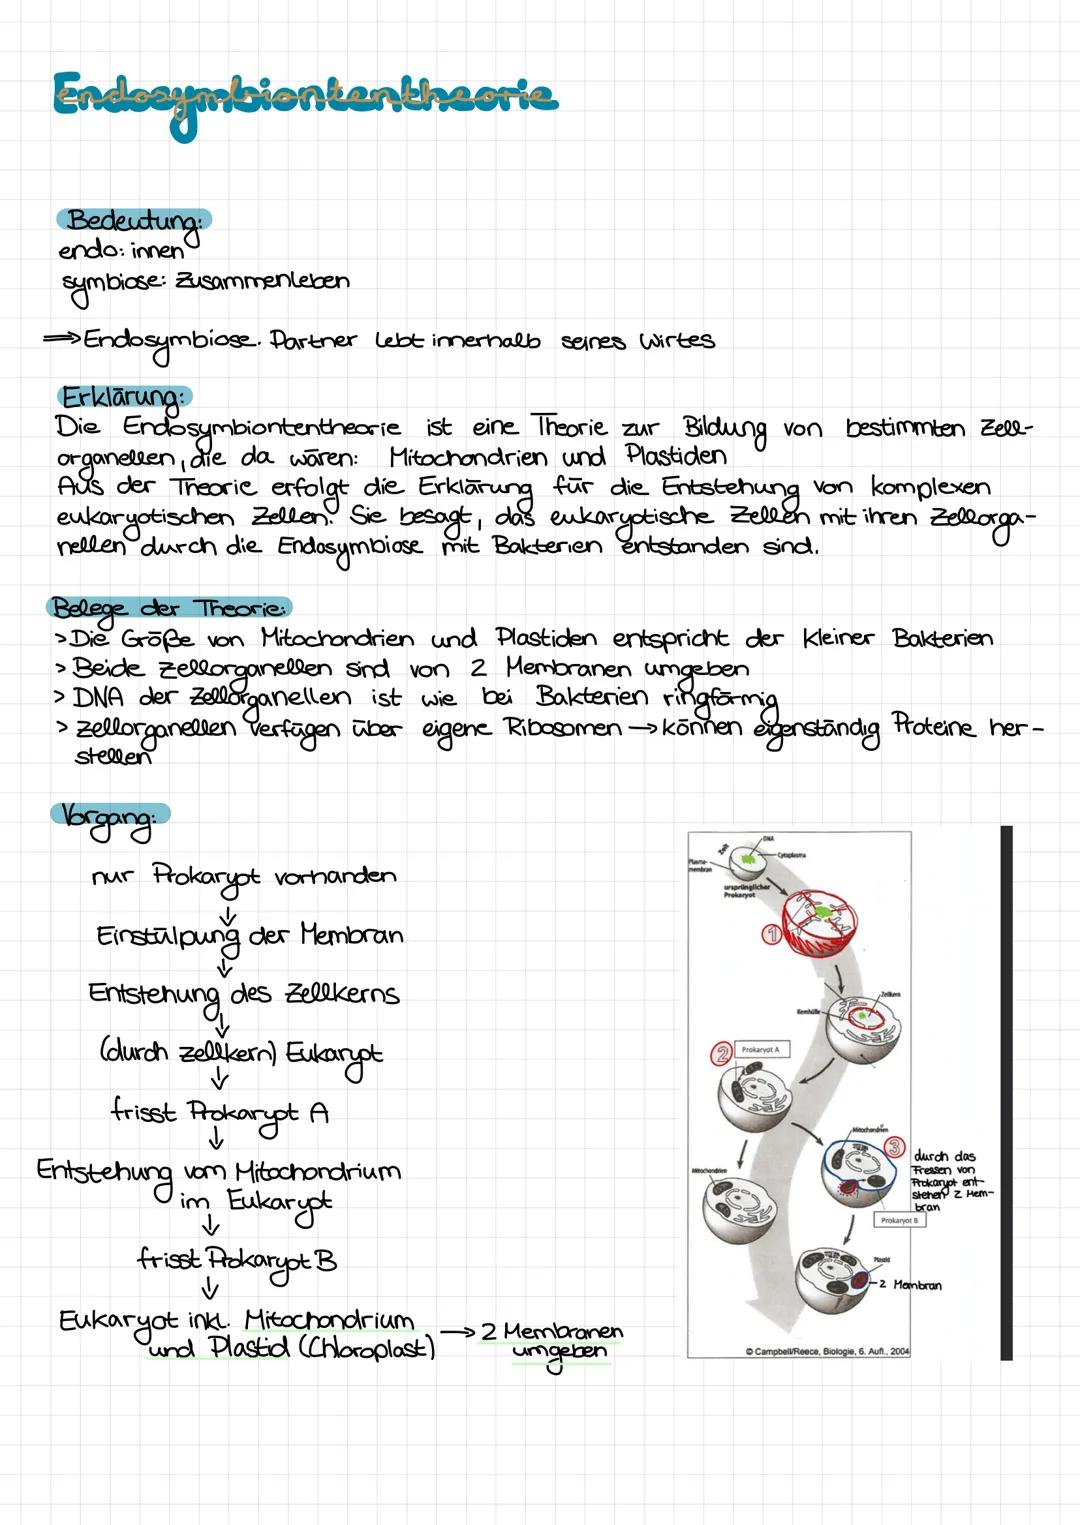 Endosymbiontentheorie
Bedeutung:
endo: innen
symbiose: Zusammenleben
⇒ Endosymbiose. Partner lebt innerhalb seines Wirtes
Erklärung:
Die Endosymbiontentheorie ist eine Theorie zur Bildung von bestimmten Zell-
organellen, die da wären: Mitochondrien und Plastiden
Aus der Theorie erfolgt die Erklärung für die Entstehung von komplexen
eukaryotischen Zellen. Sie besagt, das eukaryotische Zellen mit ihren Zellorga-
nellen durch die Endosymbiose mit Bakterien entstanden sind.
Belege der Theorie:
> Die Größe von Mitochondrien und Plastiden entspricht der kleiner Bakterien
> Beide Zellorganellen sind von 2 Membranen umgeben
> DNA der Zellorganellen ist wie bei Bakterien ringförmig
> Zellorganellen verfügen über eigene Ribosomen → können eigenständig Proteine her-
stellen
Vorgang:
nur Prokaryot vorhanden
↓
Einstülpung der Membran
↓
Entstehung des Zellkerns
↓
(durch Zellkern) Eukaryot
↓
frisst Prokaryot A
↓
Entstehung vom Mitochondrium
im Eukaryot
↓
frisst Prokaryot B
↓
Eukaryot inkl. Mitochondrium
und Plastid (Chloroplast) → 2 Membranen
umgeben
DNA
Zeit
Cytoplasma
Plasma-
membran
ursprünglicher
Prokaryot
1
Zellkern
Kernhülle
2
Prokaryot A
Mitochondrien
3
durch das
Fressen von
Prokaryot ent-
stehen 2 Mem-
bran
Mitochondrien
Prokaryot B
Plastid
2 Membran
© Campbell/Reece, Biologie, 6. Aufl., 2004